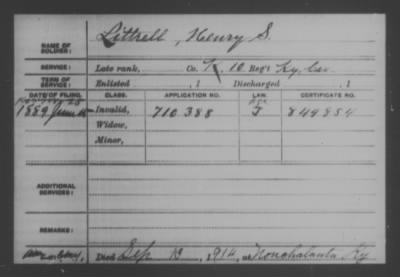 NAME OF SOLDIER: Littrell, Henry S.
SERVICE: Late rank, Co. K, 10 Reg't Ky. Cav
TERM OF SERVICE: Enlisted , 1 Discharged , 1
DATE OF FILING. CLASS. APPLICATION NO. LAW. CERTIFICATE NO.
1889 Invalid, 710 388 J 849854
Widow,
Minor,
ADDITIONAL SERVICES:
REMARKS:
Died Sep 13, 1914, at Ky